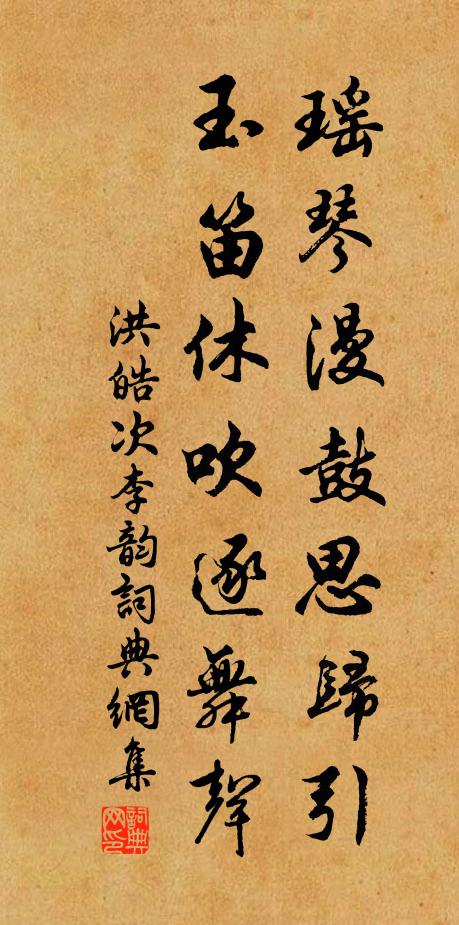 瑶琴漫鼓思歸引
玉笛休吹逐舞聲
洪皓次李韵詞典網集
詞典网印